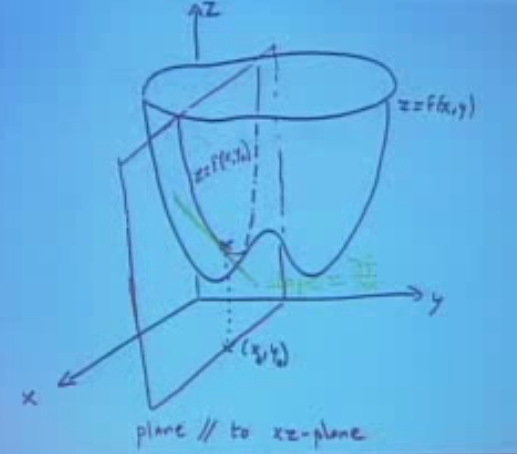 z
z=f(x,y)
z=f(x,y₀)
slope =
y
(x₀,y₀)
x
plane // to xz-plane